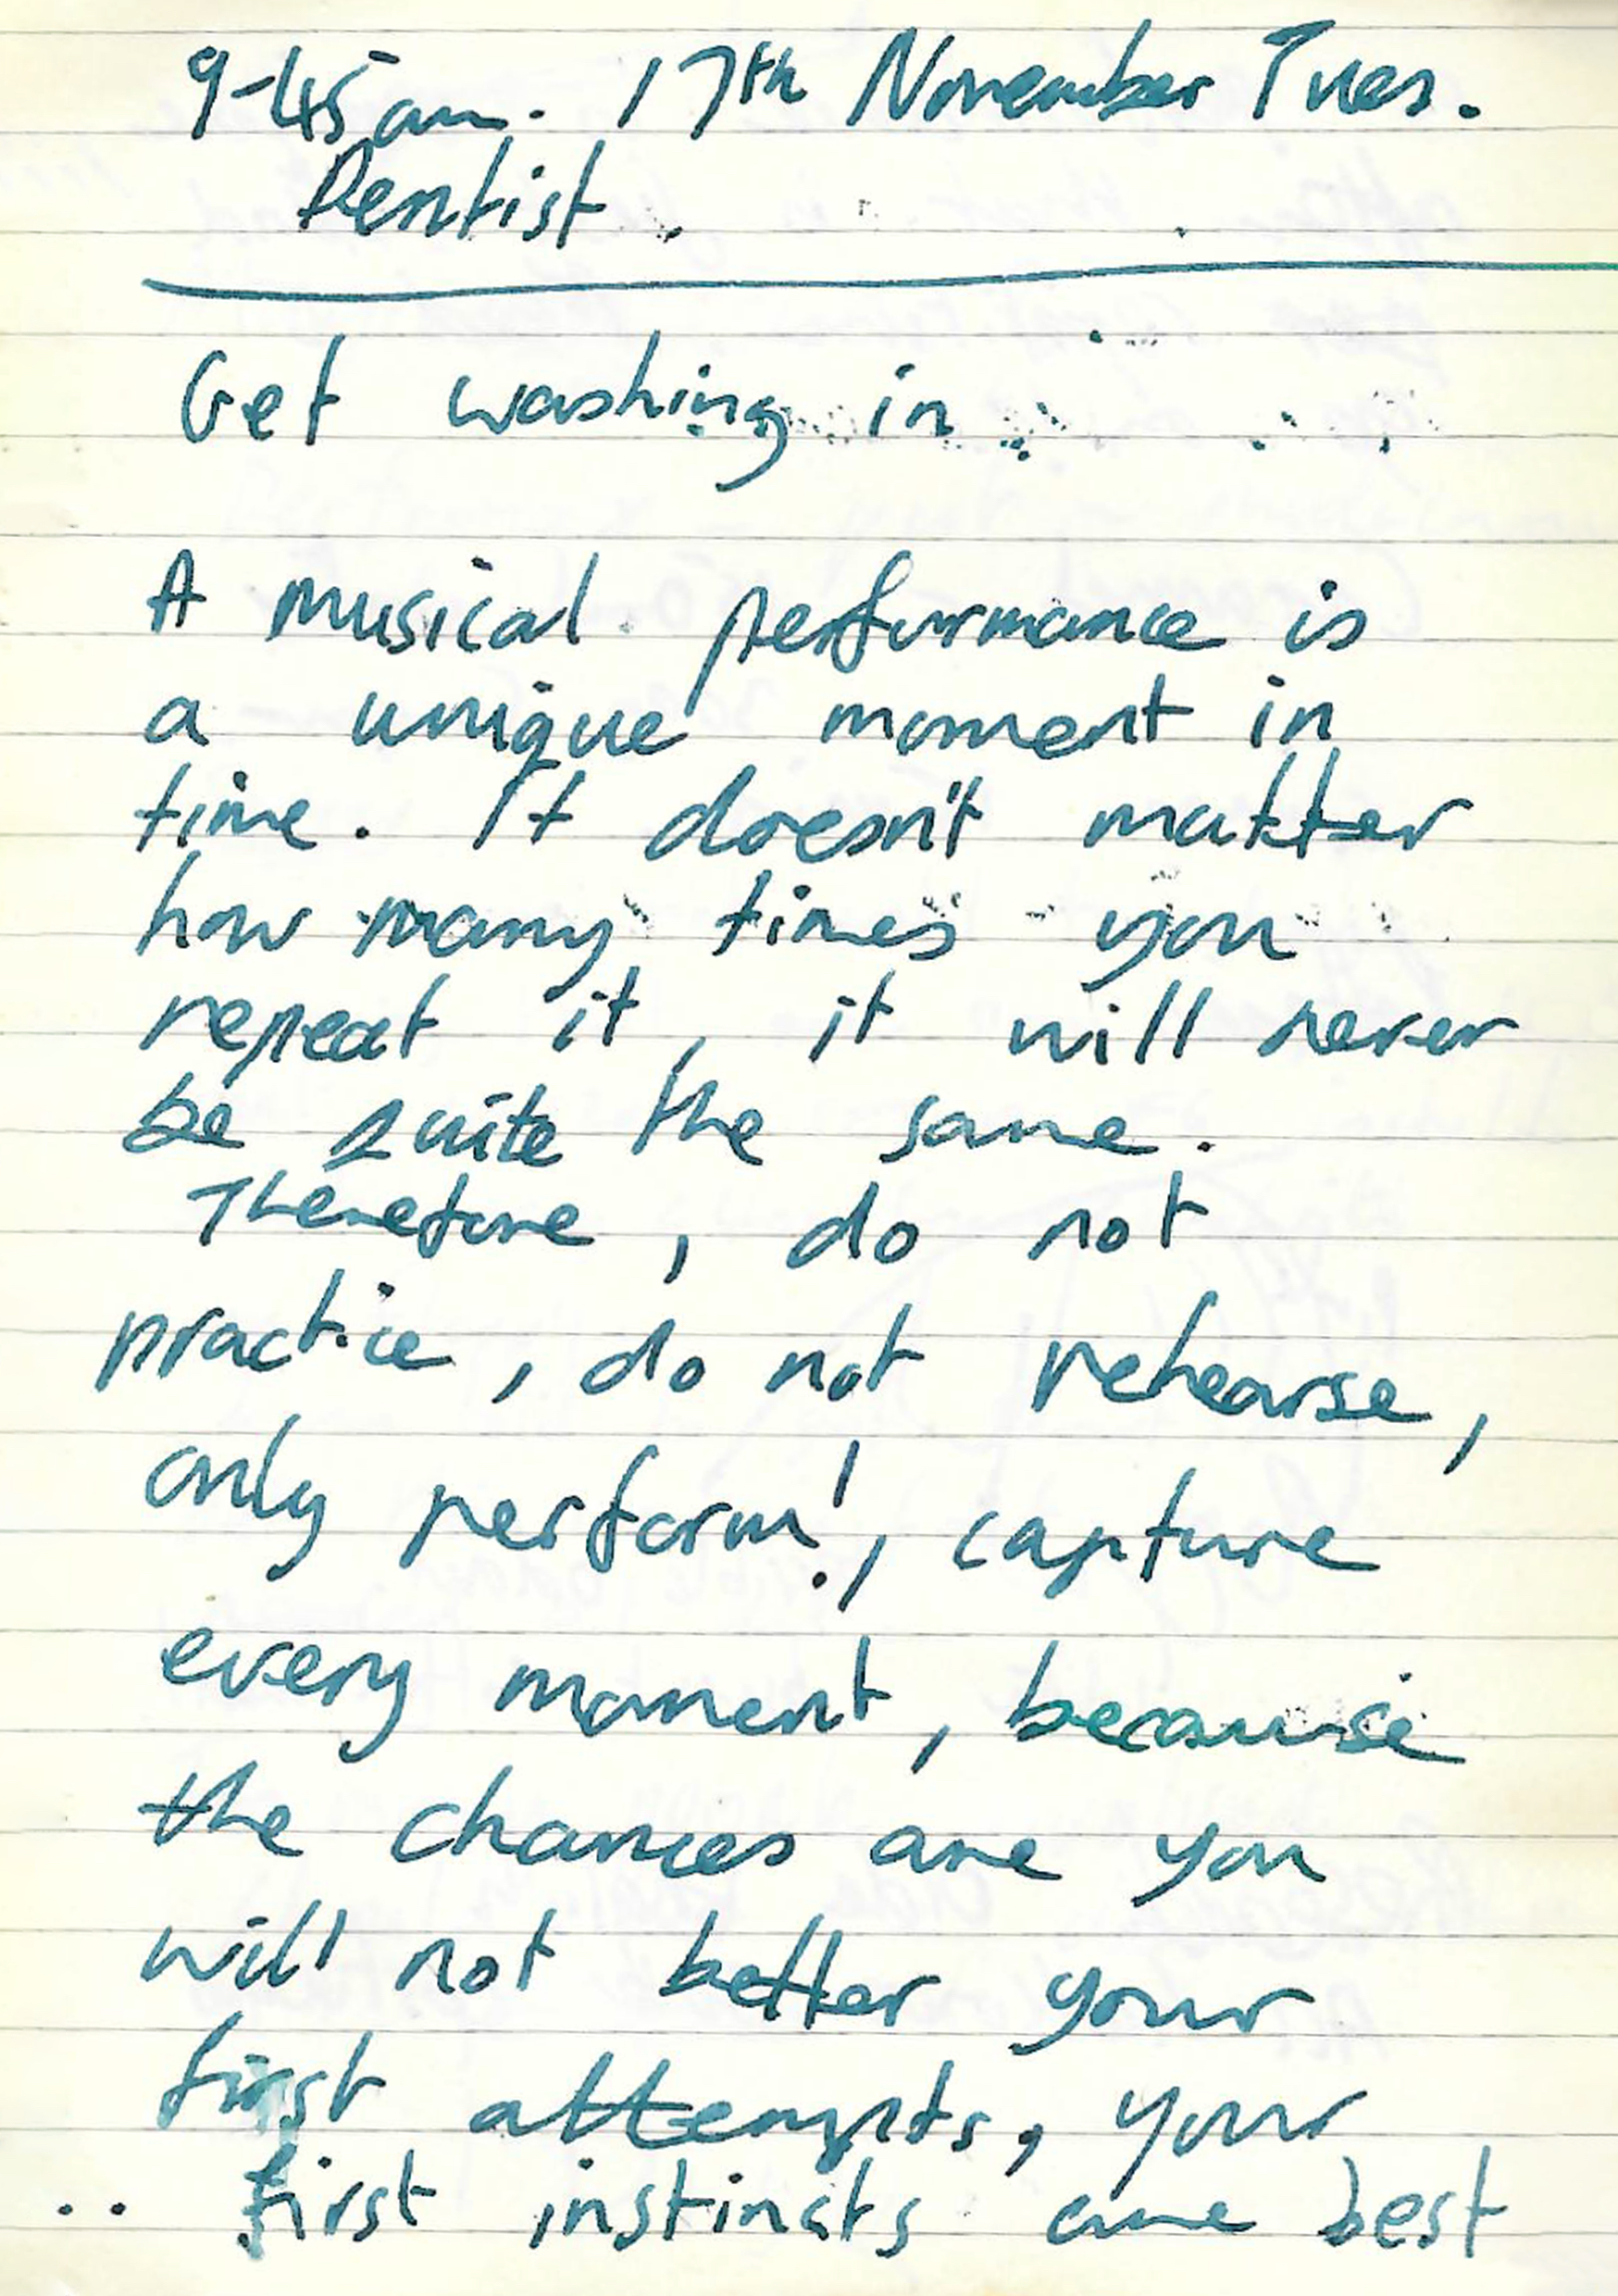 9-45am. 17th November Tues.
Dentist.
Get washing in
A musical performance is
a unique moment in
time. It doesn't matter
how many times you
repeat it, it will never
be quite the same.
Therefore, do not
practice, do not rehearse,
only perform!, capture
every moment, because
the chances are you
will not better your
first attempts, your
.. first instincts are best